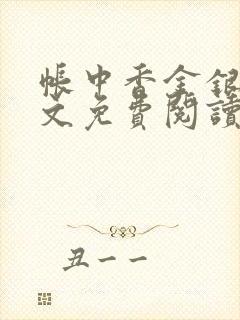 帳中香金銀
文免費閱讀
丑一一